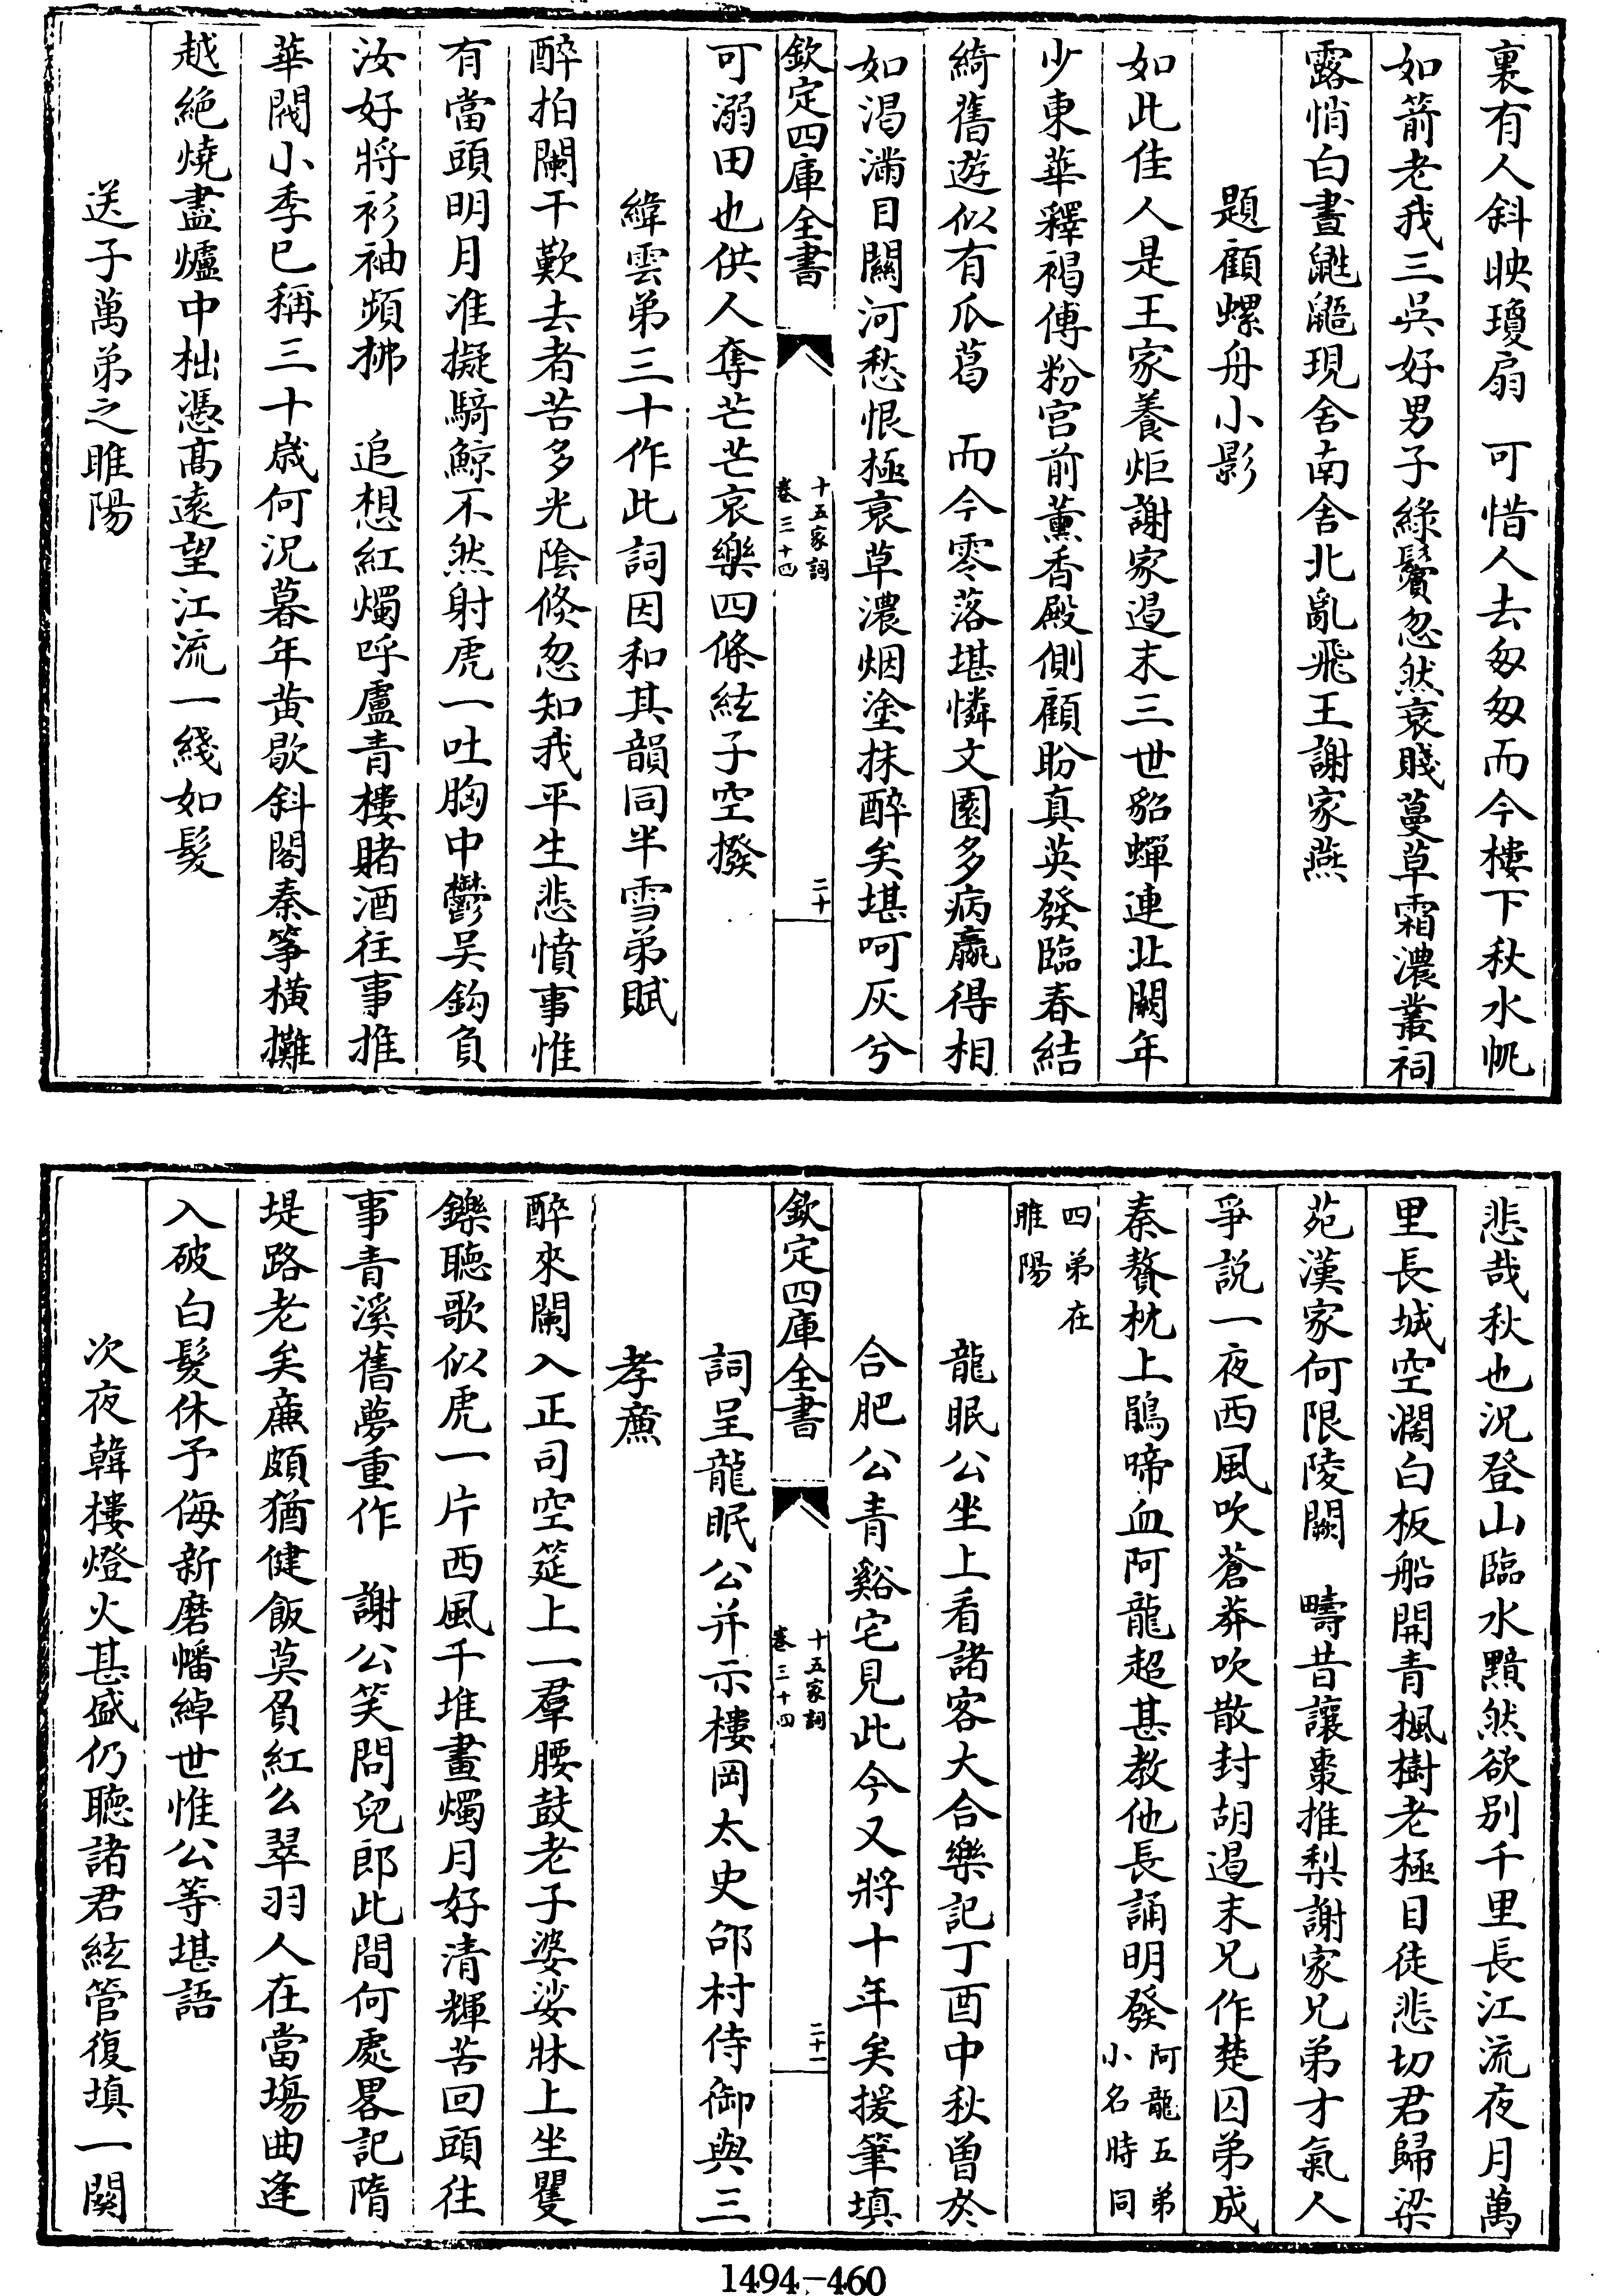 裏有人斜映瓊扇　可惜人去匆匆而今樓下秋水帆
如箭老我三吳好男子綠鬢忽然衰賤蔓草霜濃叢祠
露悄白晝鼪鼯現舍南舍北亂飛王謝家燕
題顧螺舟小影
如此佳人是王家養炬謝家遏末三世貂蟬連北闕年
少東華釋褐傅粉宮前薰香殿側顧盼真英發臨春結
綺舊遊似有瓜葛　而今零落堪憐文園多病羸得相
如渴滿目關河愁恨極衰草濃烟塗抹醉矣堪呵灰兮
欽定四庫全書
十五家詞
卷三十四
二十
可溺田也供人奪芒芒哀樂四條絃子空撥
緯雲弟三十作此詞因和其韻同半雪弟賦
醉拍闌干歎去者苦多光陰倏忽知我平生悲憤事惟
有當頭明月准擬騎鯨不然射虎一吐胸中鬱吳鈎負
汝好將衫袖頻拂　追想紅燭呼盧青樓賭酒往事推
華閥小季已稱三十歲何況暮年黄歇斜閣秦箏橫攤
越絕燒盡爐中柮憑高遠望江流一綫如髮
送子萬弟之睢陽
悲哉秋也況登山臨水黯然欲别千里長江流夜月萬
里長城空濶白板船開青楓樹老極目徒悲切君歸梁
苑漢家何限陵闕　疇昔讓棗推梨謝家兄弟才氣人
爭說一夜西風吹蒼莽吹散封胡遏末兄作楚囚弟成
秦贅枕上鵑啼血阿龍超甚教他長誦明發阿龍五弟小名時同
四弟在睢陽
龍眠公坐上看諸客大合樂記丁酉中秋曾於
合肥公青谿宅見此今又將十年矣援筆填
欽定四庫全書
十五家詞
卷三十四
二十一
詞呈龍眠公并示樓岡太史邵村侍御與三
孝廉
醉來闌入正司空筵上一羣腰鼓老子婆娑牀上坐矍
鑠聽歌似虎一片西風千堆畫燭月好清輝苦回頭往
事青溪舊夢重作　謝公笑問兒郎此間何處畧記隋
堤路老矣廉頗猶健飯莫負紅么翠羽人在當場曲逢
入破白髮休予侮新磨幡綽世惟公等堪語
次夜韓樓燈火甚盛仍聽諸君絃管復填一闋
1494—460